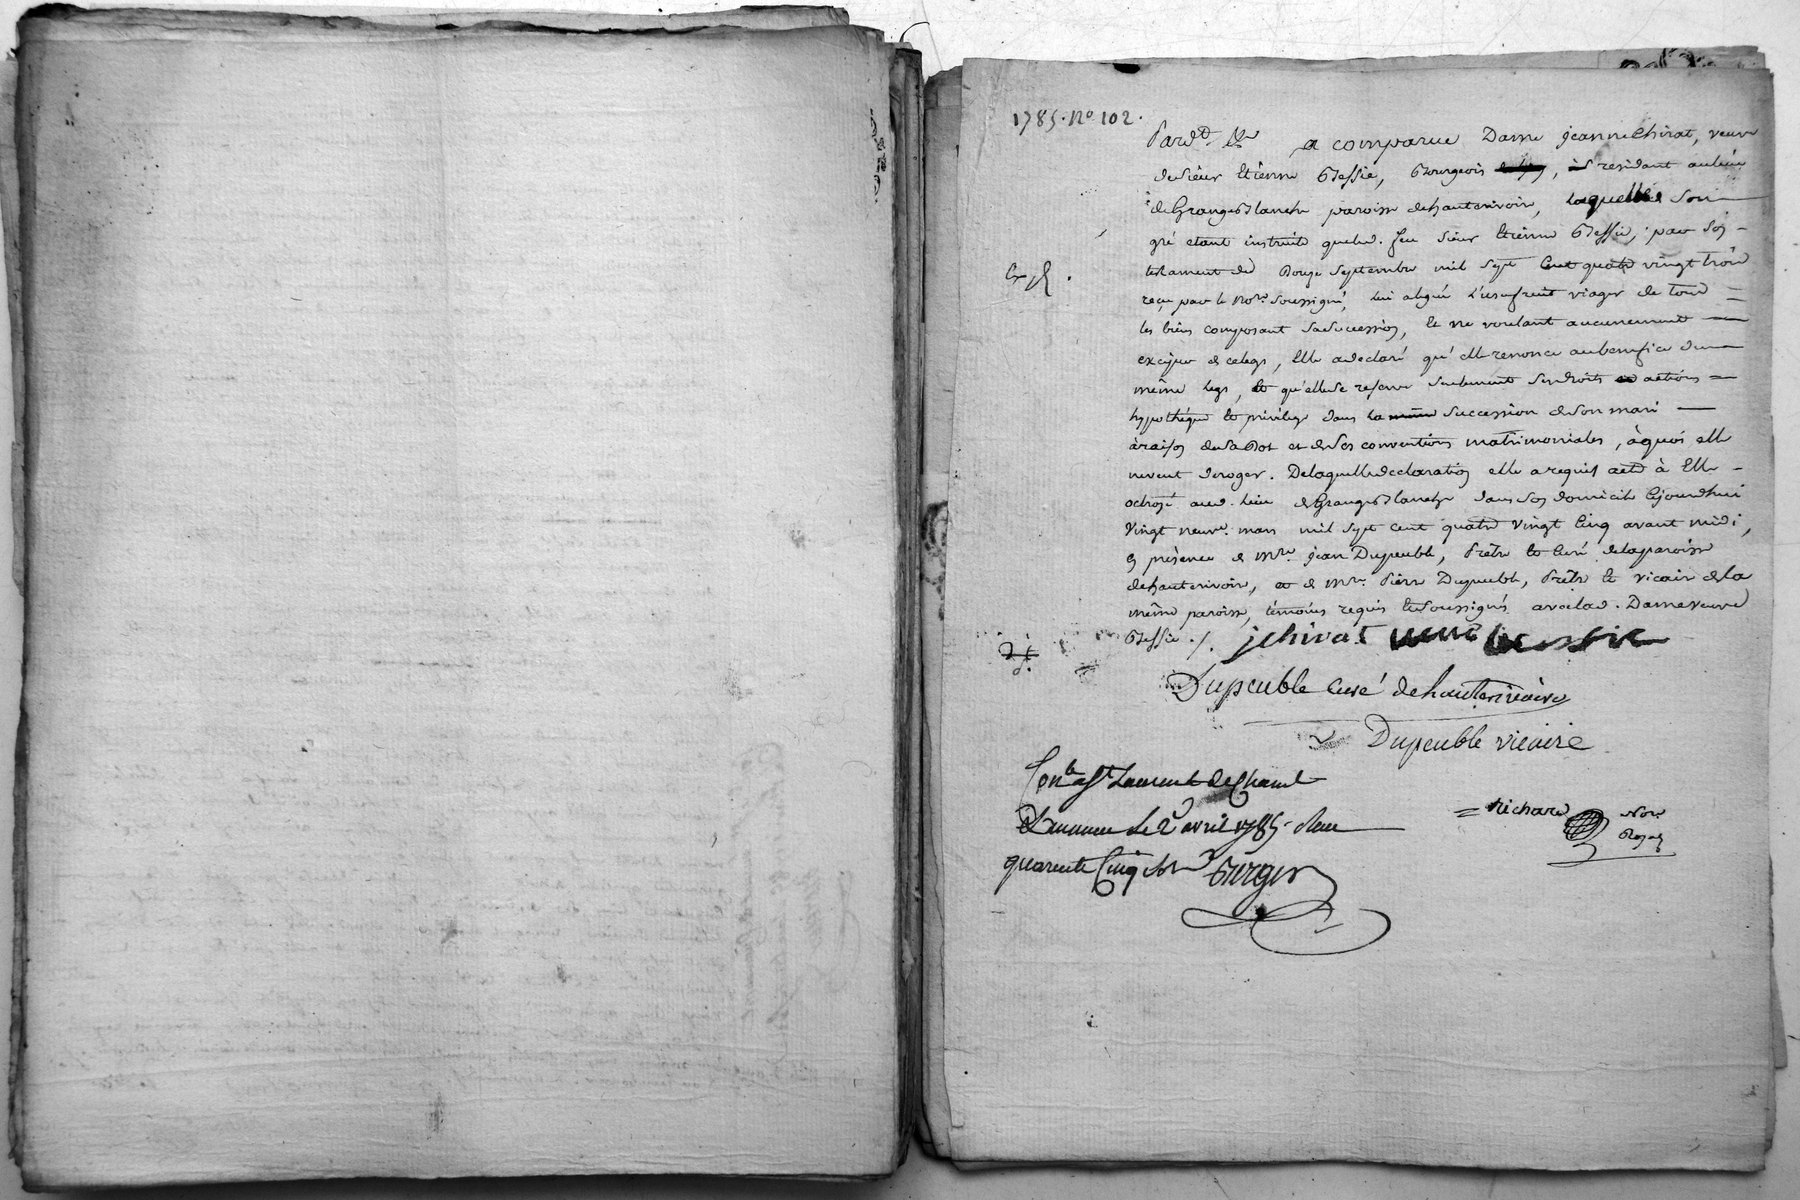 1785. No 102.
Pardt &c a comparue Dame jeanne Chirat, veuve
du sieur Etienne Bessie, Bourgeois, résidant au lieu
de Grange Blanche paroisse de hauterivoire, laquelle de son
gré etant instruite que led. feu sieur Etienne Bessie, par son
testament du Douze septembre mil sept cent quatre vingt trois
reçu par le Nore. soussigné, lui a légué l'usufruit viager de tous
les biens composant sa succession, et ne voulant aucunement
exciper de ce legs, elle a declaré qu'elle renonce au benefice du
même legs, et qu'elle se reserve seulement ses droits actions
hypothéque et privilege dans la succession de son mari
à raison de sa Dot et de ses conventions matrimoniales, à quoi elle
ne veut deroger. De laquelle declaration elle a requis acte à Elle
octroyé aud. lieu de Grange Blanche dans son domicile Cejourd'hui
vingt neuv. mars mil sept cent quatre vingt Cinq avant midi,
en présence de Mre. jean Dupeuble, Prêtre et Curé de la paroisse
de hauterivoire, et de Mre. Pierre Dupeuble, Prêtre et vicaire de la
même paroisse, témoins requis et soussignés avec lad. Dame veuve
Bessie ./. j chirat veuve bessie
Dupeuble Curé de hauterivoire
Dupeuble vicaire
Conlé à St Laurent de Cham
le 2 avril 1785. Reçu
quarente Cinq sols
= Richard Nore.
Royal